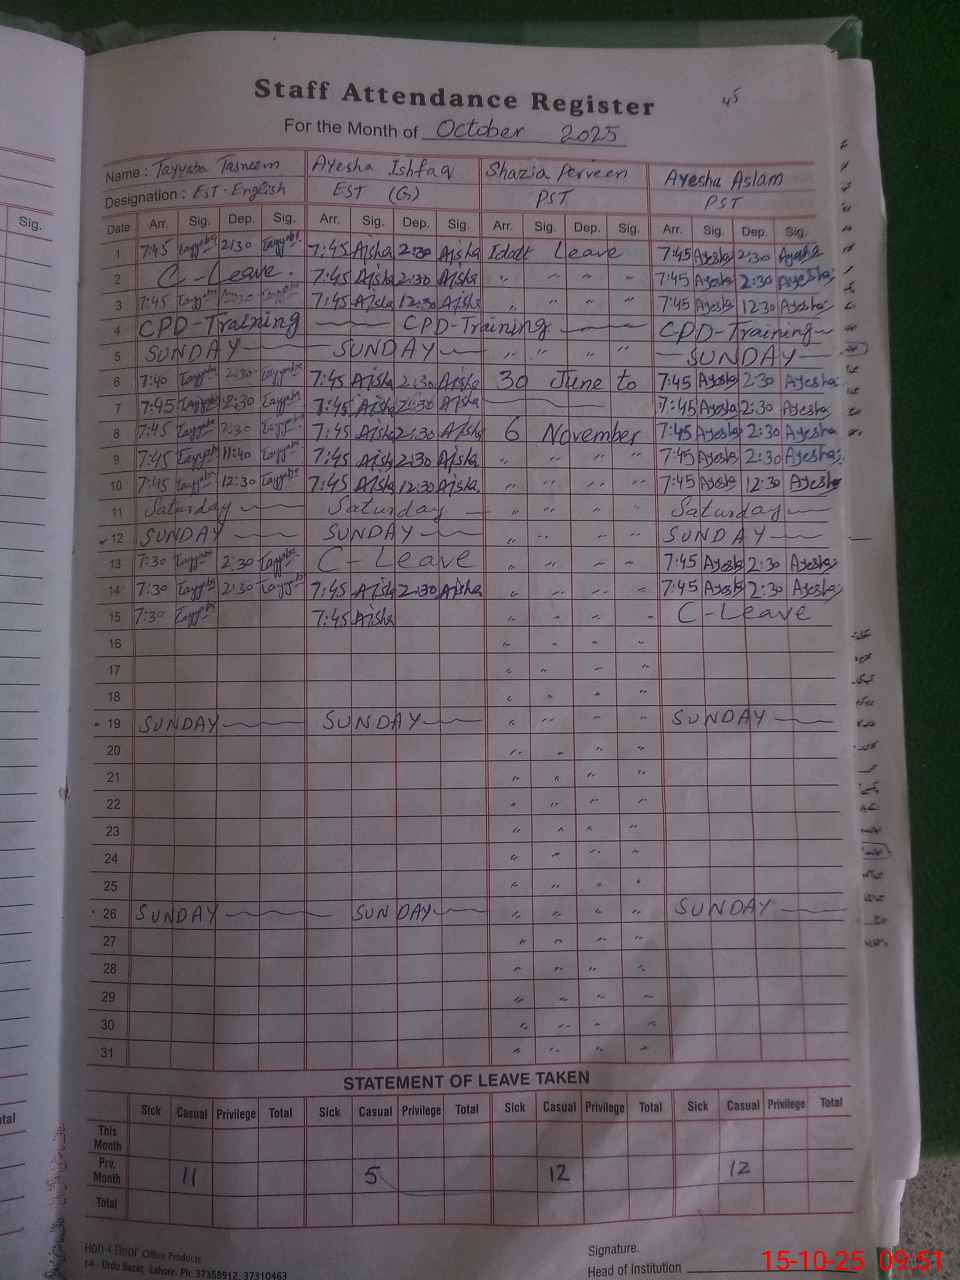 Sig.
45
Staff Attendance Register
For the Month of October 2025
Name : Tayyaba Tasneem Ayesha Ishfaq Shazia Perveen Ayesha Aslam
Designation : EST-English EST (G) PST PST
Date Arr. Sig. Dep. Sig. Arr. Sig. Dep. Sig. Arr. Sig. Dep. Sig. Arr. Sig. Dep. Sig.
1 7:45 Tayyaba 2:30 Tayyaba 7:45 Aisha 2:30 Aisha Iddat Leave 7:45 Ayesha 2:30 Ayesha
2 C-Leave. 7:45 Aisha 2:30 Aisha " " " " 7:45 Ayesha 2:30 Ayesha
3 7:45 Tayyaba 7:45 Aisha 12:30 Aisha " " " " 7:45 Ayesha 12:30 Ayesha
4 CPD-Training CPD-Training CPD-Training
5 SUNDAY SUNDAY " " " " SUNDAY
6 7:40 Tayyaba 2:30 Tayyaba 7:45 Aisha 2:30 Aisha 30 June to 7:45 Ayesha 2:30 Ayesha
7 7:45 Tayyaba 2:30 Tayyaba 7:45 Aisha 2:30 Aisha 7:45 Ayesha 2:30 Ayesha
8 7:45 Tayyaba 2:30 Tayyaba 7:45 Aisha 2:30 Aisha 6 November 7:45 Ayesha 2:30 Ayesha
9 7:45 Tayyaba 11:40 Tayyaba 7:45 Aisha 2:30 Aisha " " " " 7:45 Ayesha 2:30 Ayesha
10 7:45 Tayyaba 12:30 Tayyaba 7:45 Aisha 12:30 Aisha " " " " 7:45 Ayesha 12:30 Ayesha
11 Saturday Saturday " " " " Saturday
12 SUNDAY SUNDAY " " " " SUNDAY
13 7:30 Tayyaba 2:30 Tayyaba C-Leave " " " " 7:45 Ayesha 2:30 Ayesha
14 7:30 Tayyaba 2:30 Tayyaba 7:45 Aisha 2:30 Aisha " " " " 7:45 Ayesha 2:30 Ayesha
15 7:30 Tayyaba 7:45 Aisha " " " " C-Leave
16 " " " "
17 " " " "
18 " " " "
19 SUNDAY SUNDAY " " " " SUNDAY
20 " " " "
21 " " " "
22 " " " "
23 " " " "
24 " " " "
25 " " " "
26 SUNDAY SUNDAY " " " " SUNDAY
27 " " " "
28 " " " "
29 " " " "
30 " " " "
31 " " " "
STATEMENT OF LEAVE TAKEN
Sick Casual Privilege Total Sick Casual Privilege Total Sick Casual Privilege Total Sick Casual Privilege Total
This Month
Prv. Month 11 5 12 12
Total
Office Products
14 - Urdu Bazar, Lahore. Ph: 37358912, 37310463
Signature.
Head of Institution
15-10-25 09:51